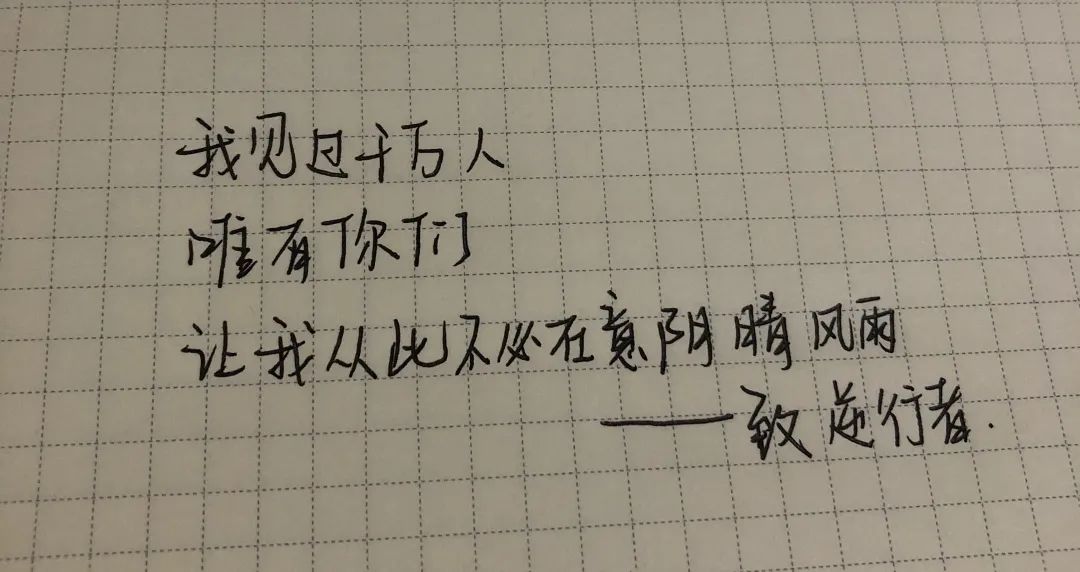 我见过千万人
唯有你们
让我从此不必在意阴晴风雨
——致逆行者.